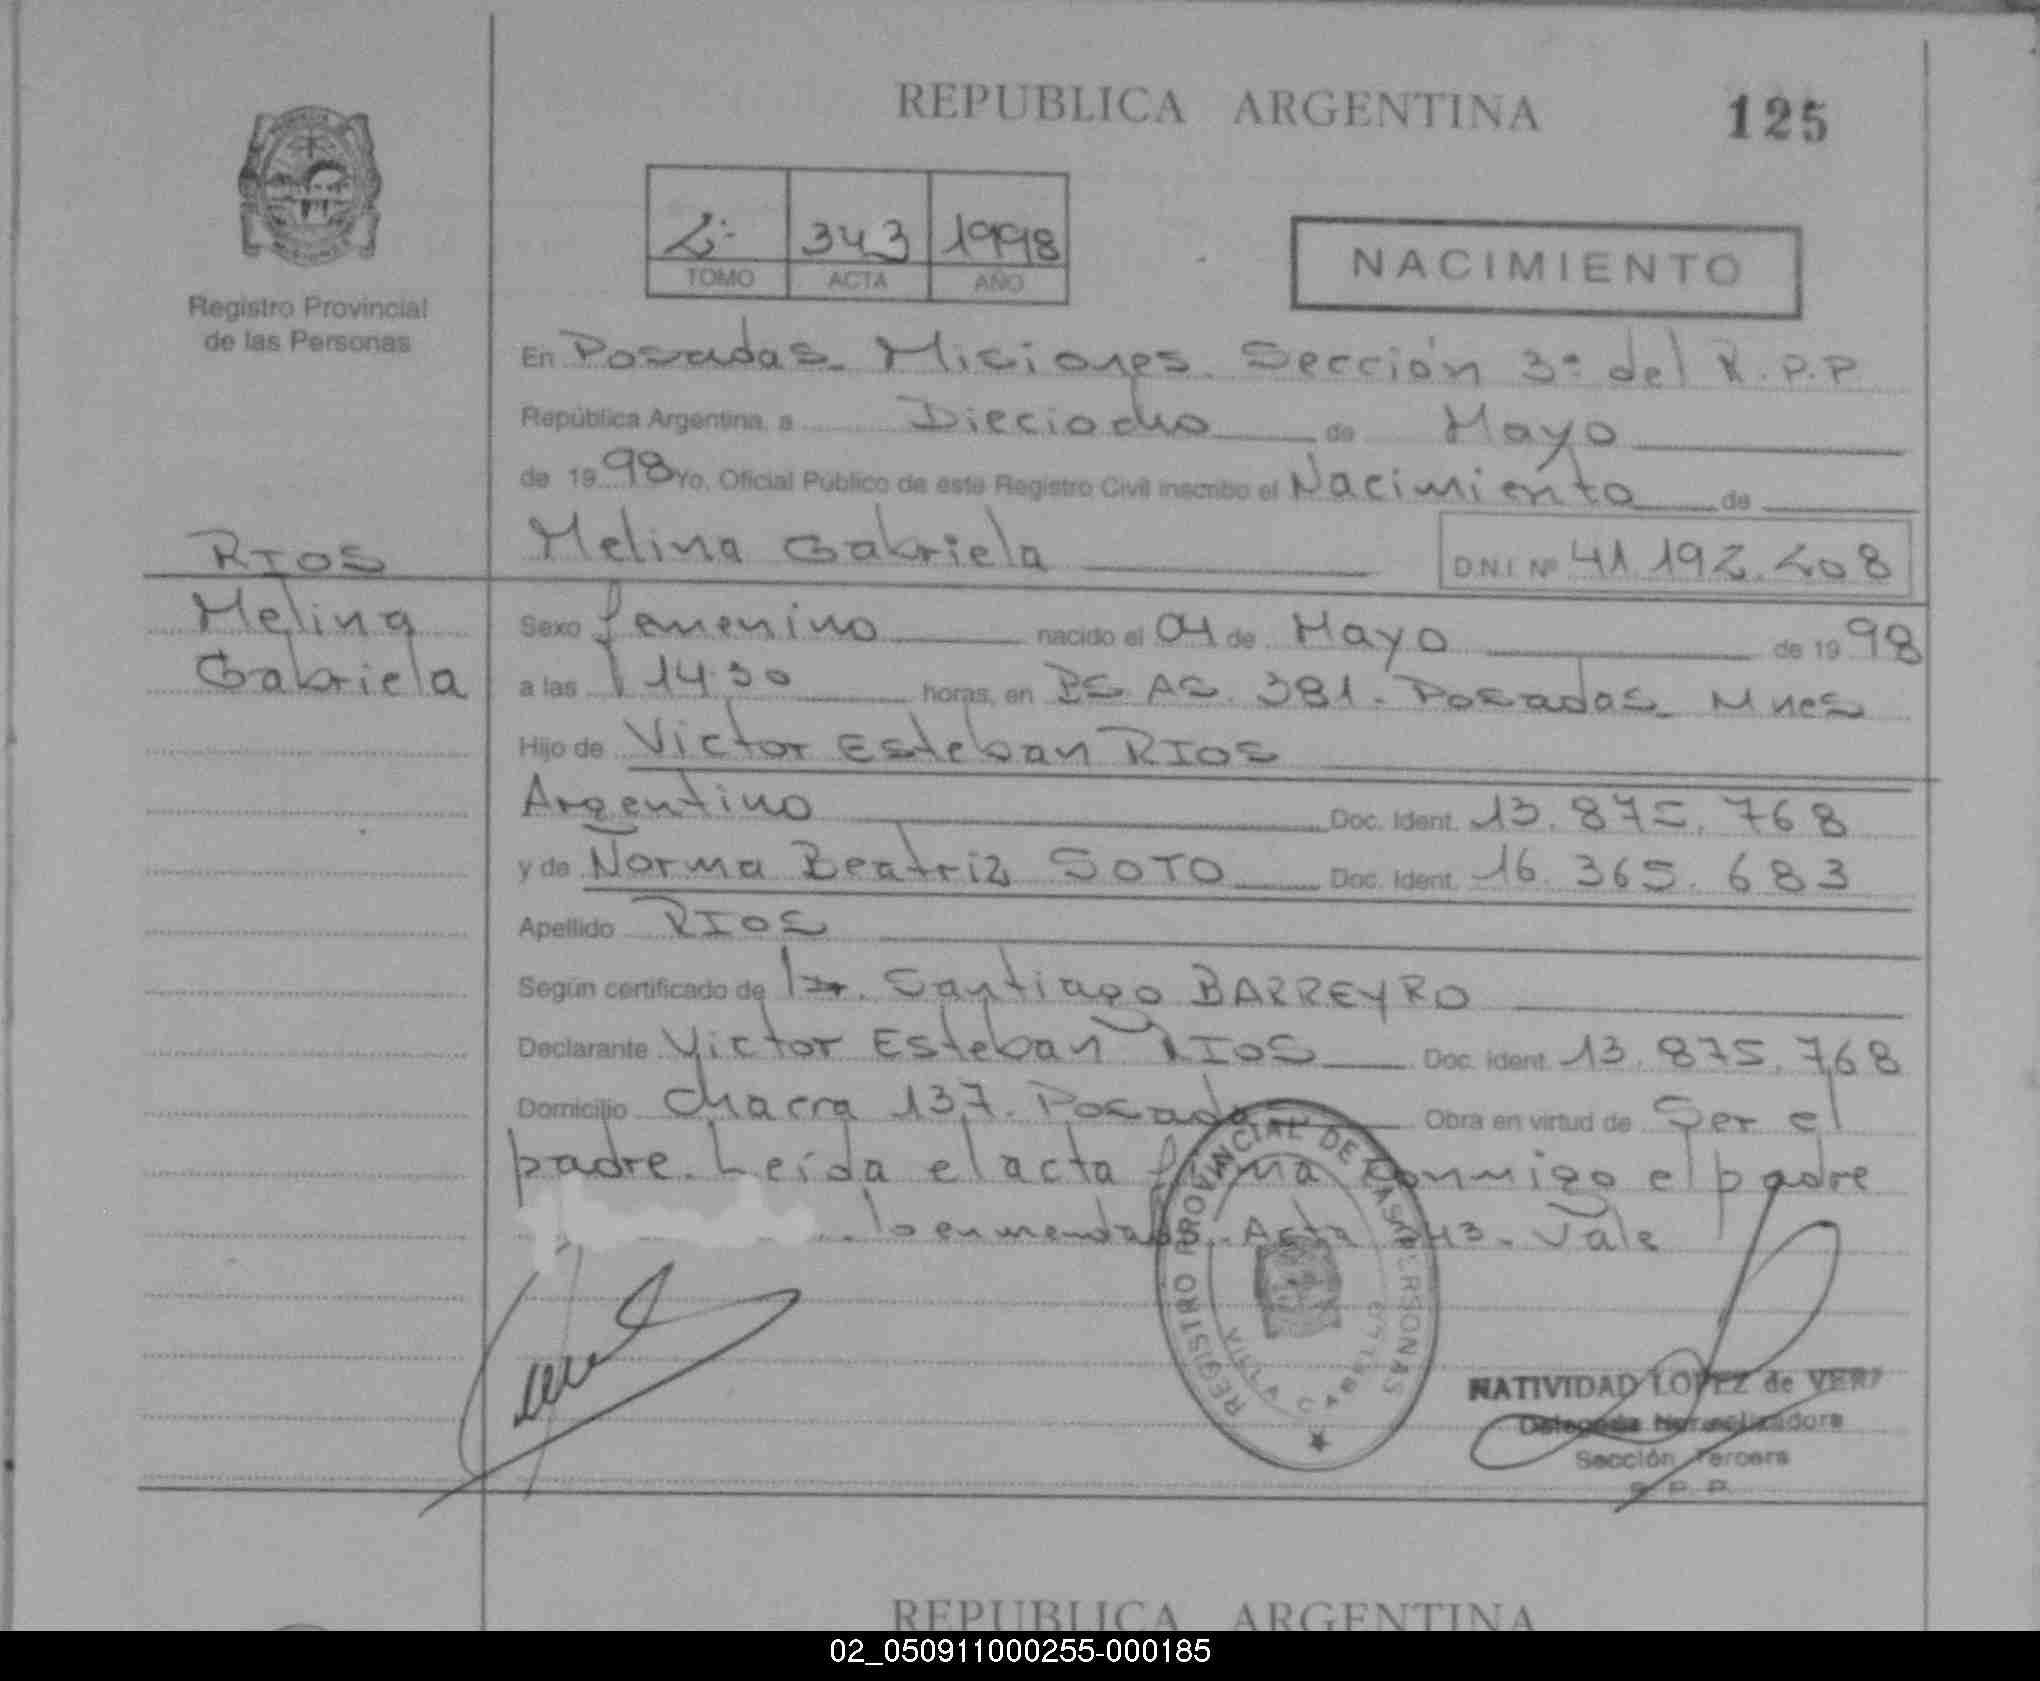 REPUBLICA ARGENTINA
125
2º 343 1998
TOMO ACTA AÑO
NACIMIENTO
Registro Provincial
de las Personas
En Posadas Misiones. Sección 3ª del R.P.P
República Argentina, a Dieciocho de Mayo
de 1998 Yo, Oficial Público de este Registro Civil inscribo el Nacimiento de
RIOS
Melina Gabriela D.N.I. Nº 41.192.208
Melina
Gabriela
Sexo femenino nacido el 04 de Mayo de 1998
a las 14.30 horas, en BS. AS. 381. Posadas Mnes
Hijo de Victor Esteban RIOS
Argentino Doc. Ident. 13.875.768
y de Norma Beatriz SOTO Doc. Ident. 16.365.683
Apellido RIOS
Según certificado de Santiago BARREYRO
Declarante Victor Esteban RIOS Doc. Ident. 13.875.768
Domicilio Chacra 137. Posadas Obra en virtud de Ser el
padre. Leída el acta firma conmigo el padre
lo enmendado. Acta 343. Vale
REGISTRO PROVINCIAL DE LAS PERSONAS
VILLA CABELLO
NATIVIDAD LOPEZ de
Delegada Normalizadora
Sección Tercera
R.P.P.
REPUBLICA ARGENTINA
02_050911000255-000185